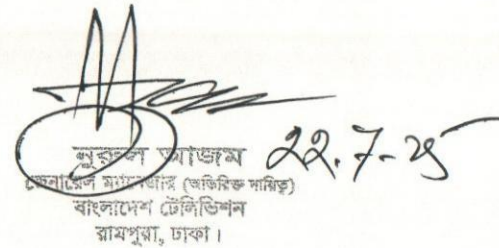 নুরুল আজম ২২.7-২5
জেনারেল ম্যানেজার (অতিরিক্ত দায়িত্ব)
বাংলাদেশ টেলিভিশন
রামপুরা, ঢাকা।